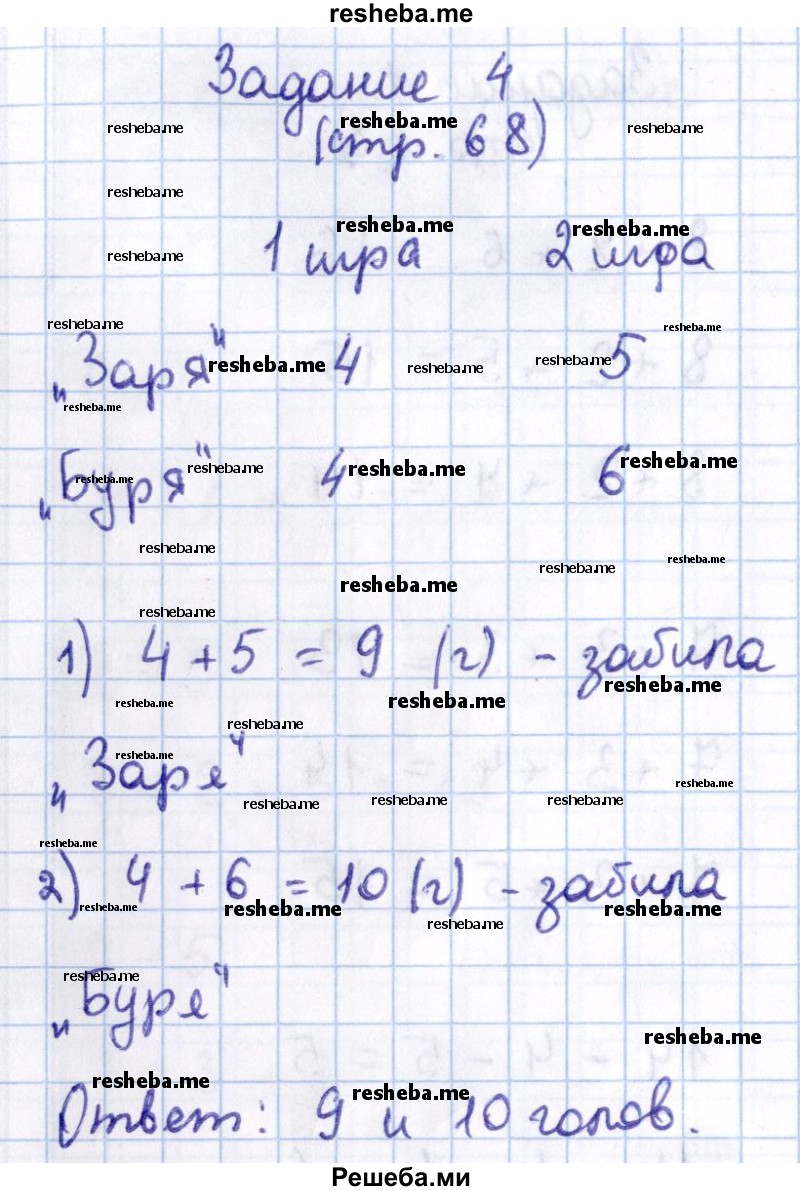 resheba.me
Задание 4
resheba.me resheba.me resheba.me
(стр. 68)
resheba.me
resheba.me resheba.me
resheba.me 1 игра 2 игра
resheba.me resheba.me
„Заря“ resheba.me 4 resheba.me resheba.me 5
resheba.me
„Буря“ resheba.me resheba.me 4 resheba.me 6 resheba.me
resheba.me resheba.me
resheba.me resheba.me
resheba.me
1) 4 + 5 = 9 (г) - забила
resheba.me resheba.me resheba.me
resheba.me
„Заря“ resheba.me resheba.me
resheba.me resheba.me resheba.me
resheba.me
2) 4 + 6 = 10 (г) - забила
resheba.me resheba.me resheba.me
resheba.me
resheba.me
„Буря“
resheba.me
resheba.me resheba.me
Ответ: 9 и 10 голов.
Решеба.ми